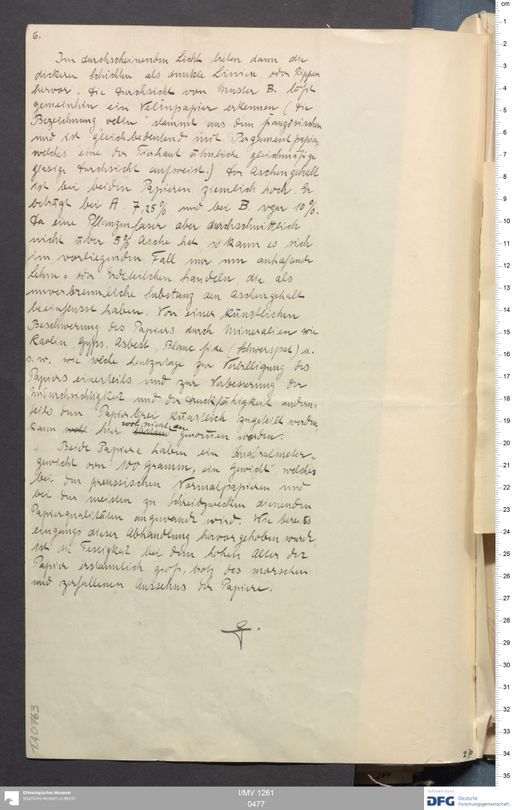 6.
Im durchscheinenden Licht treten dann die
dickeren Schichten als dunkle Linien oder Rippen
hervor. Die Durchsicht von Muster B. läßt
gemeinhin ein Velinpapier erkennen (die
Bezeichnung velin" stammt aus dem französischen
und ist gleichbedeutend mit Pergamentpapier,
welches eine der Tierhaut ähnliche gleichmäßige
glasige Durchsicht aufweist.) Der Aschengehalt
ist bei beiden Papieren ziemlich hoch. Er
beträgt bei A. 7,25% und bei B. sogar 10%.
Da eine Pflanzenfaser aber durchschnittlich
nicht über 5% Asche hat so kann es sich
im vorliegenden Fall nur um anhaftende
Lehm= oder Erdteilchen handeln, die als
unverbrennliche Substanz den Aschengehalt
beeinflusst haben. Von einer künstlichen
Beschwerung des Papiers durch Mineralien wie
Kaolin, Gyps, Asbest, Blanc fixe (Schwerspat) u.
s. w. wie solche heutzutage zur Verbilligung des
Papiers einerteils und zur Verbesserung der
Undurchsichtigkeit und der Druckfähigkeit andern-
teils dem Papierbrei künstlich zugeteilt werden
kann hier wohl nicht an
genommen werden.
Beide Papiere haben ein Quadratmeter-
gewicht von 100 gramm, ein Gewicht welches
bei den preussischen Normalpapieren und
bei den meisten zu Schreibzwecken dienenden
Papierqualitäten angewandt wird. Wie bereits
eingangs dieser Abhandlung hervorgehoben wurde,
ist die Festigkeit bei dem hohen Alter der
Papier erstaunlich groß, trotz des morschen
und zerfallenen Aussehns der Papiere.
TA 0763
I/MV 1261
0477
Ethnologisches Museum
Staatliche Museen zu Berlin
DFG Deutsche
Forschungsgemeinschaft
cm
1
2
3
4
5
6
7
8
9
10
11
12
13
14
15
16
17
18
19
20
21
22
23
24
25
26
27
28
29
30
31
32
33
34
35